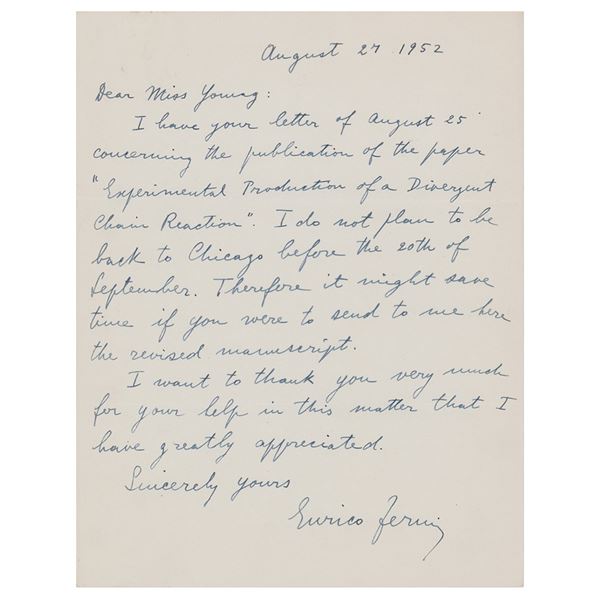 August 27 1952
Dear Miss Young:
I have your letter of August 25
concerning the publication of the paper
"Experimental Production of a Divergent
Chain Reaction". I do not plan to be
back to Chicago before the 20th of
September. Therefore it might save
time if you were to send to me here
the revised manuscript.
I want to thank you very much
for your help in this matter that I
have greatly appreciated.
Sincerely yours
Enrico Fermi